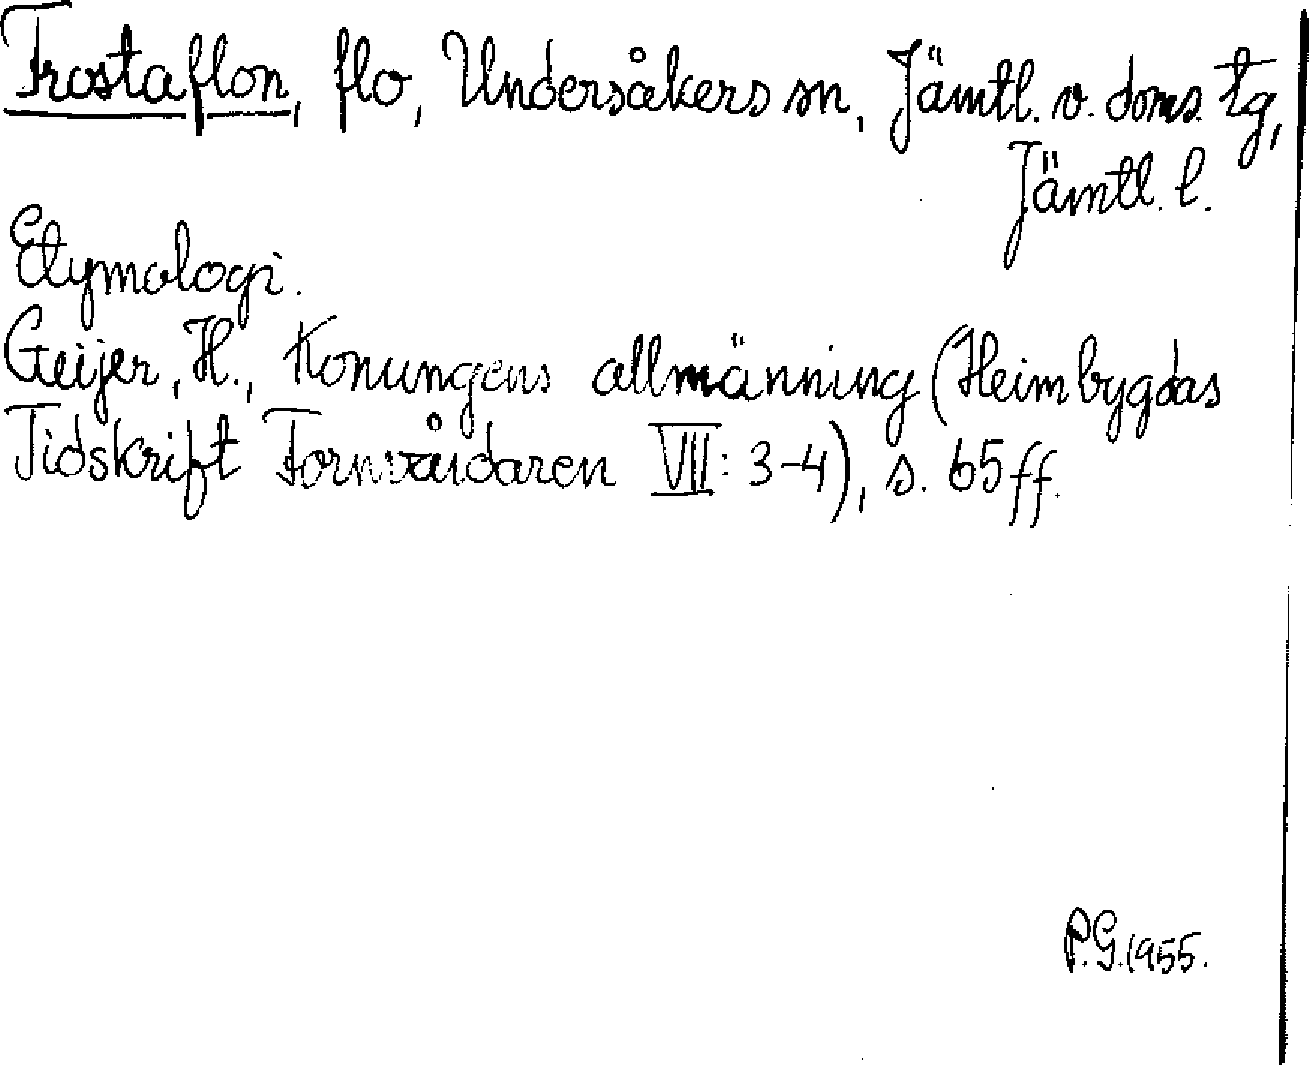 Frostaflon, flo, Undersåkers sn, Jämtl. v. doms. tg,
Jämtl. l.
Etymologi.
Geijer, H., Konungens allmänning (Heimbygdas
Tidskrift Fornvårdaren VII: 3-4), s. 65 ff.
P.G. 1955.